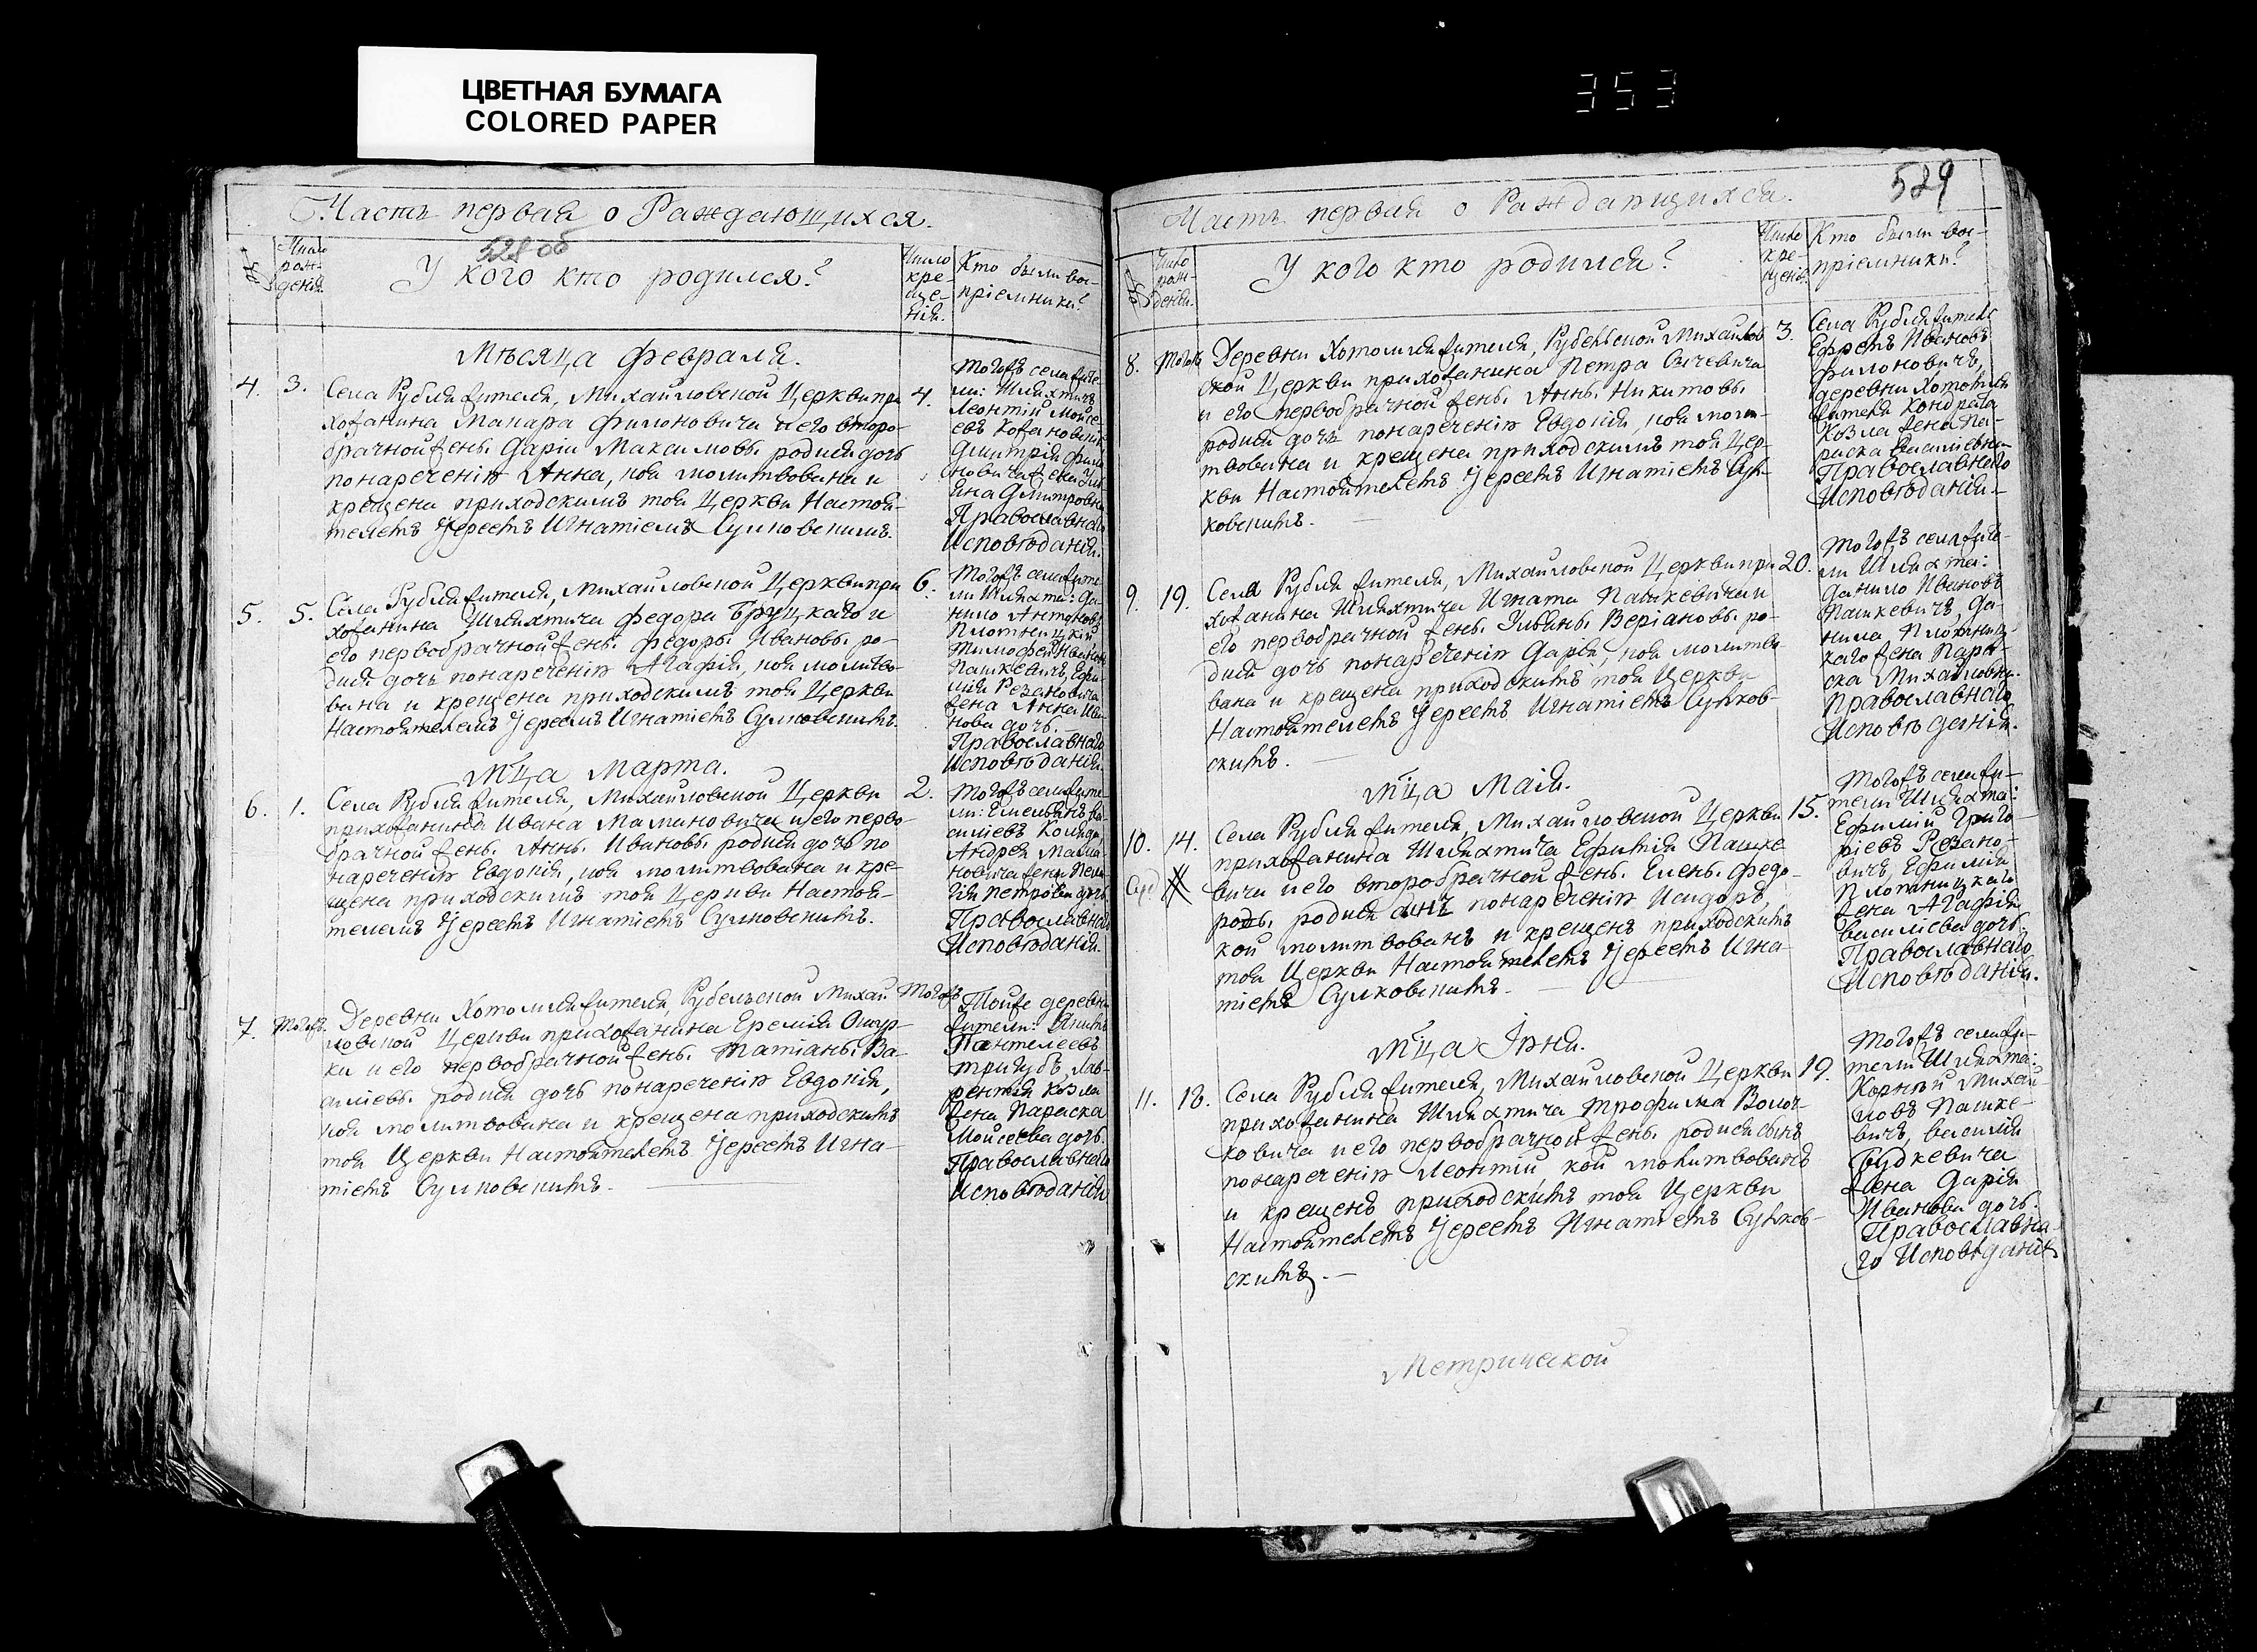 ЦВЕТНАЯ БУМАГА
COLORED PAPER
353
Часть первая о Раждающихся.
528 об
Число рож- денія.
У кого кто родился?
Число кре- ще- нія.
Кто были вос- пріемники?
Мѣсяца Февраля.
4. 3.
Села Рубля жителя, Михайловской Церкви при
хожанина Макара Филоновича и его второ-
брачной жены Даріи Максимовы родися дочь
понареченію Анна, коя молитвована и
крещена приходскимъ тоя Церкви Настоя-
телемъ Іереемъ Игнатіемъ Сулковскимъ.
4.
Тогожъ села жите-
ли: Шляхтичъ
Леонтій Мойсе-
евъ
Дмитрія Фило-
новича жена
Дмитровна
Православнаго
Исповѣданія.
5. 5.
Села Рубля жителя, Михайловской Церкви при
хожанина Шляхтича Федора Бруцкаго и
его первобрачной жены Федоры Ивановы ро-
дися дочь понареченію Агафія, коя молитво-
вана и крещена приходскимъ тоя Церкви
Настоятелемъ Іереемъ Игнатіемъ Сулковскимъ.
6.
Тогожъ села жите-
ли Шляхта: Да-
нило Антоновъ
Плотницкій
Тимофей Ивановъ
Пашкевичъ, Ефи-
мія Резановича
жена Анна Ива-
нова дочь.
Православнаго
Исповѣданія.
Мца Марта.
6. 1.
Села Рубля жителя, Михайловской Церкви
прихожанина Ивана Мамановича и его перво-
брачной жены Анны Ивановы родися дочь по
нареченію Евдокія, коя молитвована и кре-
щена приходскимъ тоя Церкви Настоя-
телемъ Іереемъ Игнатіемъ Сулковскимъ.
2.
Тогожъ села жите-
ли: Емельянъ Ва-
силіевъ
Андрея Мама-
новича жена Пела-
гія Петрова дочь
Православнаго
Исповѣданія.
7. Тогожъ.
Деревни Хотомля жителя, Рубельской Михай
ловской Церкви прихожанина Еремія
ки и его первобрачной жены Татіаны Ва-
силіевы родися дочь понареченію Евдокія,
коя молитвована и крещена приходскимъ
тоя Церкви Настоятелемъ Іереемъ Игна-
тіемъ Сулковскимъ.
Тогожъ
Тойже деревни
жители: Якимъ
Пантелеевъ
Тригубъ, Лав-
рентія Козла
жена Параска
Мойсеева дочь.
Православнаго
Исповѣданія
529
Часть первая о Раждающихся.
Число рож- денія.
У кого кто родился?
Число кре- щенія.
Кто были вос- пріемники?
8. Тогожъ
Деревни Хотомля жителя, Рубельской Михайлов
ской Церкви прихожанина Петра Сачевича
и его первобрачной жены Анны Никитовы
родися дочь понареченію Евдокія, коя моли-
твована и крещена приходскимъ тоя Цер-
кви Настоятелемъ Іереемъ Игнатіемъ Сул-
ковскимъ.
3.
Села Рубля житель
Ефремъ Ивановъ
Филоновичъ,
деревни Хотомля
жителя Кондрата
Козла жена Па-
раска Василіевна
Православнаго
Исповѣданія.
9. 19.
Села Рубля жителя, Михайловской Церкви при
хожанина Шляхтича Игната Пашкевича и
его первобрачной жены Ульяны Веріановы ро-
дися дочь понареченію Дарія, коя молитво
вана и крещена приходскимъ тоя Церкви
Настоятелемъ Іереемъ Игнатіемъ Сулков-
скимъ.
20.
Тогожъ села жите-
ли Шляхта:
Данило Ивановъ
Пашкевичъ, Да-
нила Плотниц-
каго жена Пара-
ска Михайловна.
Православнаго
Исповѣданія.
Мца Маія.
10. 14.
Села Рубля жителя, Михайловской Церкви
прихожанина Шляхтича Ефимія Пашке
вича и его второбрачной жены Елены Федо-
ровы родися сынъ понареченію Исидоръ,
кой молитвованъ и крещенъ приходскимъ
тоя Церкви Настоятелемъ Іереемъ Игна-
тіемъ Сулковскимъ.
15.
Тогожъ села жи-
тели Шляхта:
Ефимій Григо-
ріевъ Резано-
вичъ, Ефимія
Плотницкаго
жена Агафія
Василіева дочь,
Православнаго
Исповѣданія.
Мца Іюня.
11. 18.
Села Рубля жителя, Михайловской Церкви
прихожанина Шляхтича Трофима Волот-
ковича и его первобрачной жены родися сынъ
понареченію Леонтій кой молитвованъ
и крещенъ приходскимъ тоя Церкви
Настоятелемъ Іереемъ Игнатіемъ Сулков-
скимъ.
19.
Тогожъ села жи-
тели Шляхта:
Корній Михай-
ловъ Пашке-
вичъ, Василія
Будкевича
жена Дарія
Иванова дочь.
Православна-
го Исповѣданія
Метрической